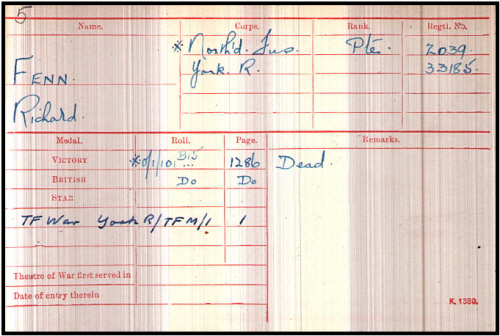 5
Name. Corps. Rank. Regtl. No.
* North'd. Fus. Pte. 2039.
FENN. York. R. 33185.
Richard.
Medal. Roll. Page. Remarks.
VICTORY *O/1/101 B15 1286 Dead.
BRITISH Do Do
STAR
TF War York R/TFM/1 1
Theatre of War first served in
Date of entry therein
K. 1380.